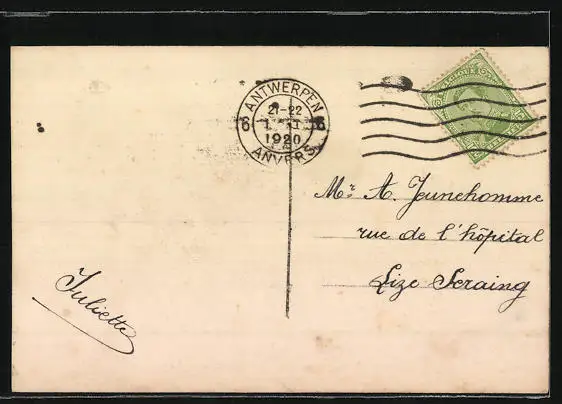 ANTWERPEN
21-22
1920
ANVERS
6 6
BELGIQUE
Mr A. Jeunehomme
rue de l'hôpital
Lize Seraing
Juliette